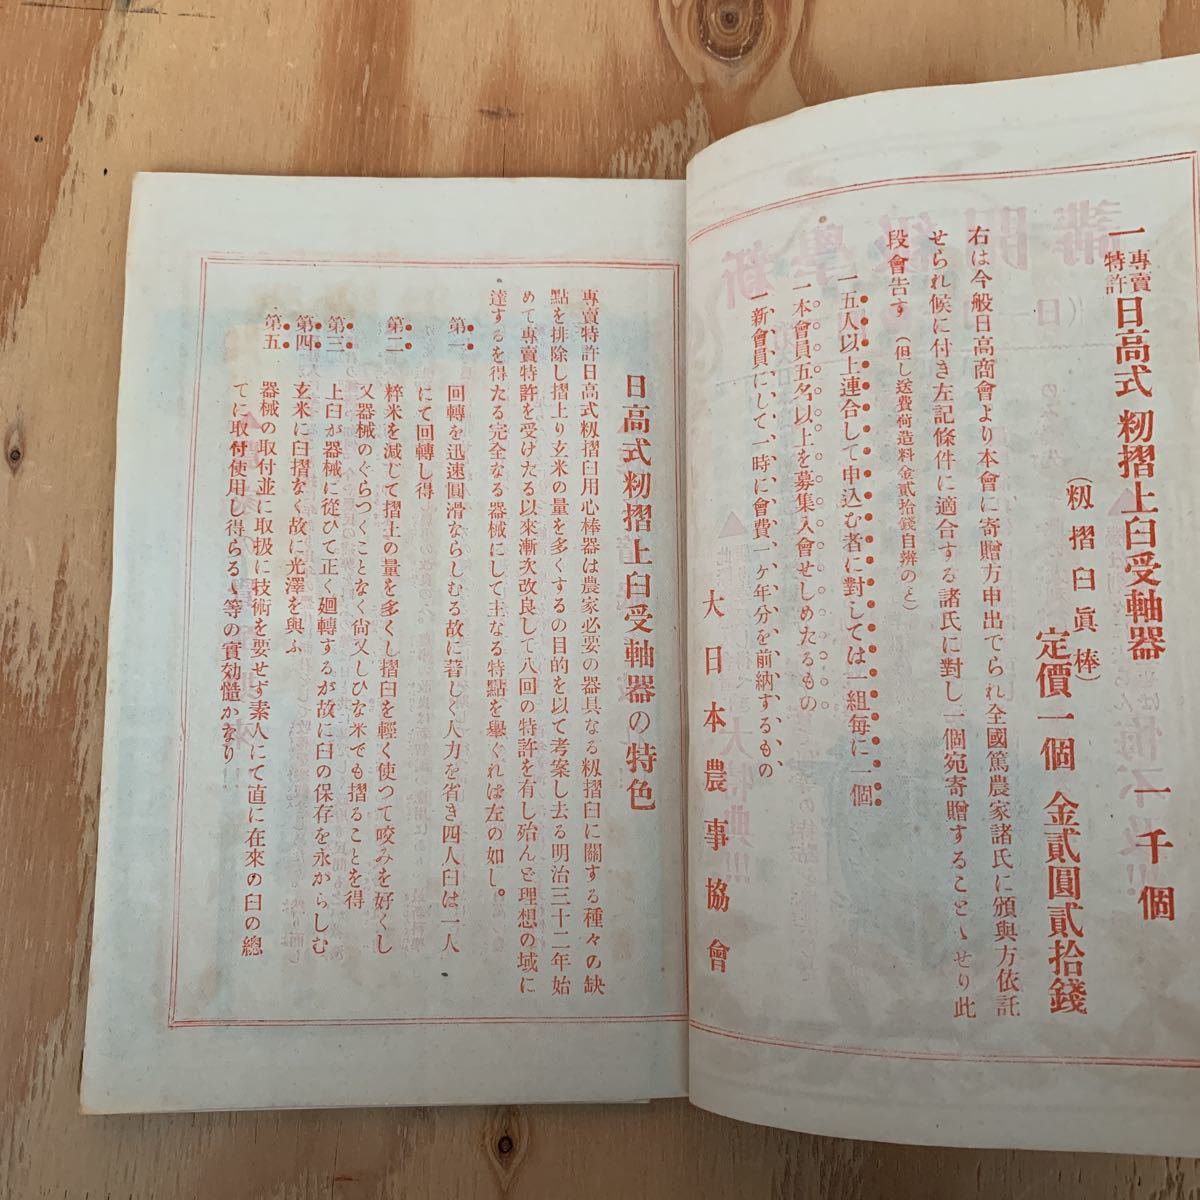 一 專賣特許 日高式籾摺上臼受軸器 一千個
(籾摺臼眞棒) 定價一個金貳圓貳拾錢
右は今般日高商會より本會に寄贈方申出でられ全國篤農家諸氏に頒與方依託
せられ候に付き左記條件に適合する諸氏に對し一個宛寄贈することゝせり此
段會告す (但し送費荷造料金貳拾錢自辨のと)
一五人以上連合して申込む者に對しては一組毎に一個
一本會員五名以上を募集入會せしめたるもの
一新會員にして一時に會費一ヶ年分を前納するもの
大日本農事協會
日高式籾摺上臼受軸器の特色
專賣特許日高式籾摺臼用心棒器は農家必要の器具なる籾摺臼に關する種々の缺
點を排除し摺上り玄米の量を多くするの目的を以て考案し去る明治三十二年始
めて專賣特許を受けたる以來漸次改良して八回の特許を有し殆んと理想の域に
達するを得たる完全なる器械にして主なる特點を擧ぐれは左の如し。
第一 回轉を迅速圓滑ならしむる故に著しく人力を省き四人臼は一人
にて回轉し得
第二 粹米を減じて摺上の量を多くし摺臼を輕く使つて咬みを好くし
又器械のぐらつくことなく尙又しひな米でも摺ることを得
第三 上臼が器械に從ひて正く廻轉するが故に臼の保存を永からしむ
第四 玄米に臼摺なく故に光澤を與ふ
第五 器械の取付並に取扱に技術を要せず素人にて直に在來の臼の總
てに取付使用し得らるゝ等の實効慥かなり